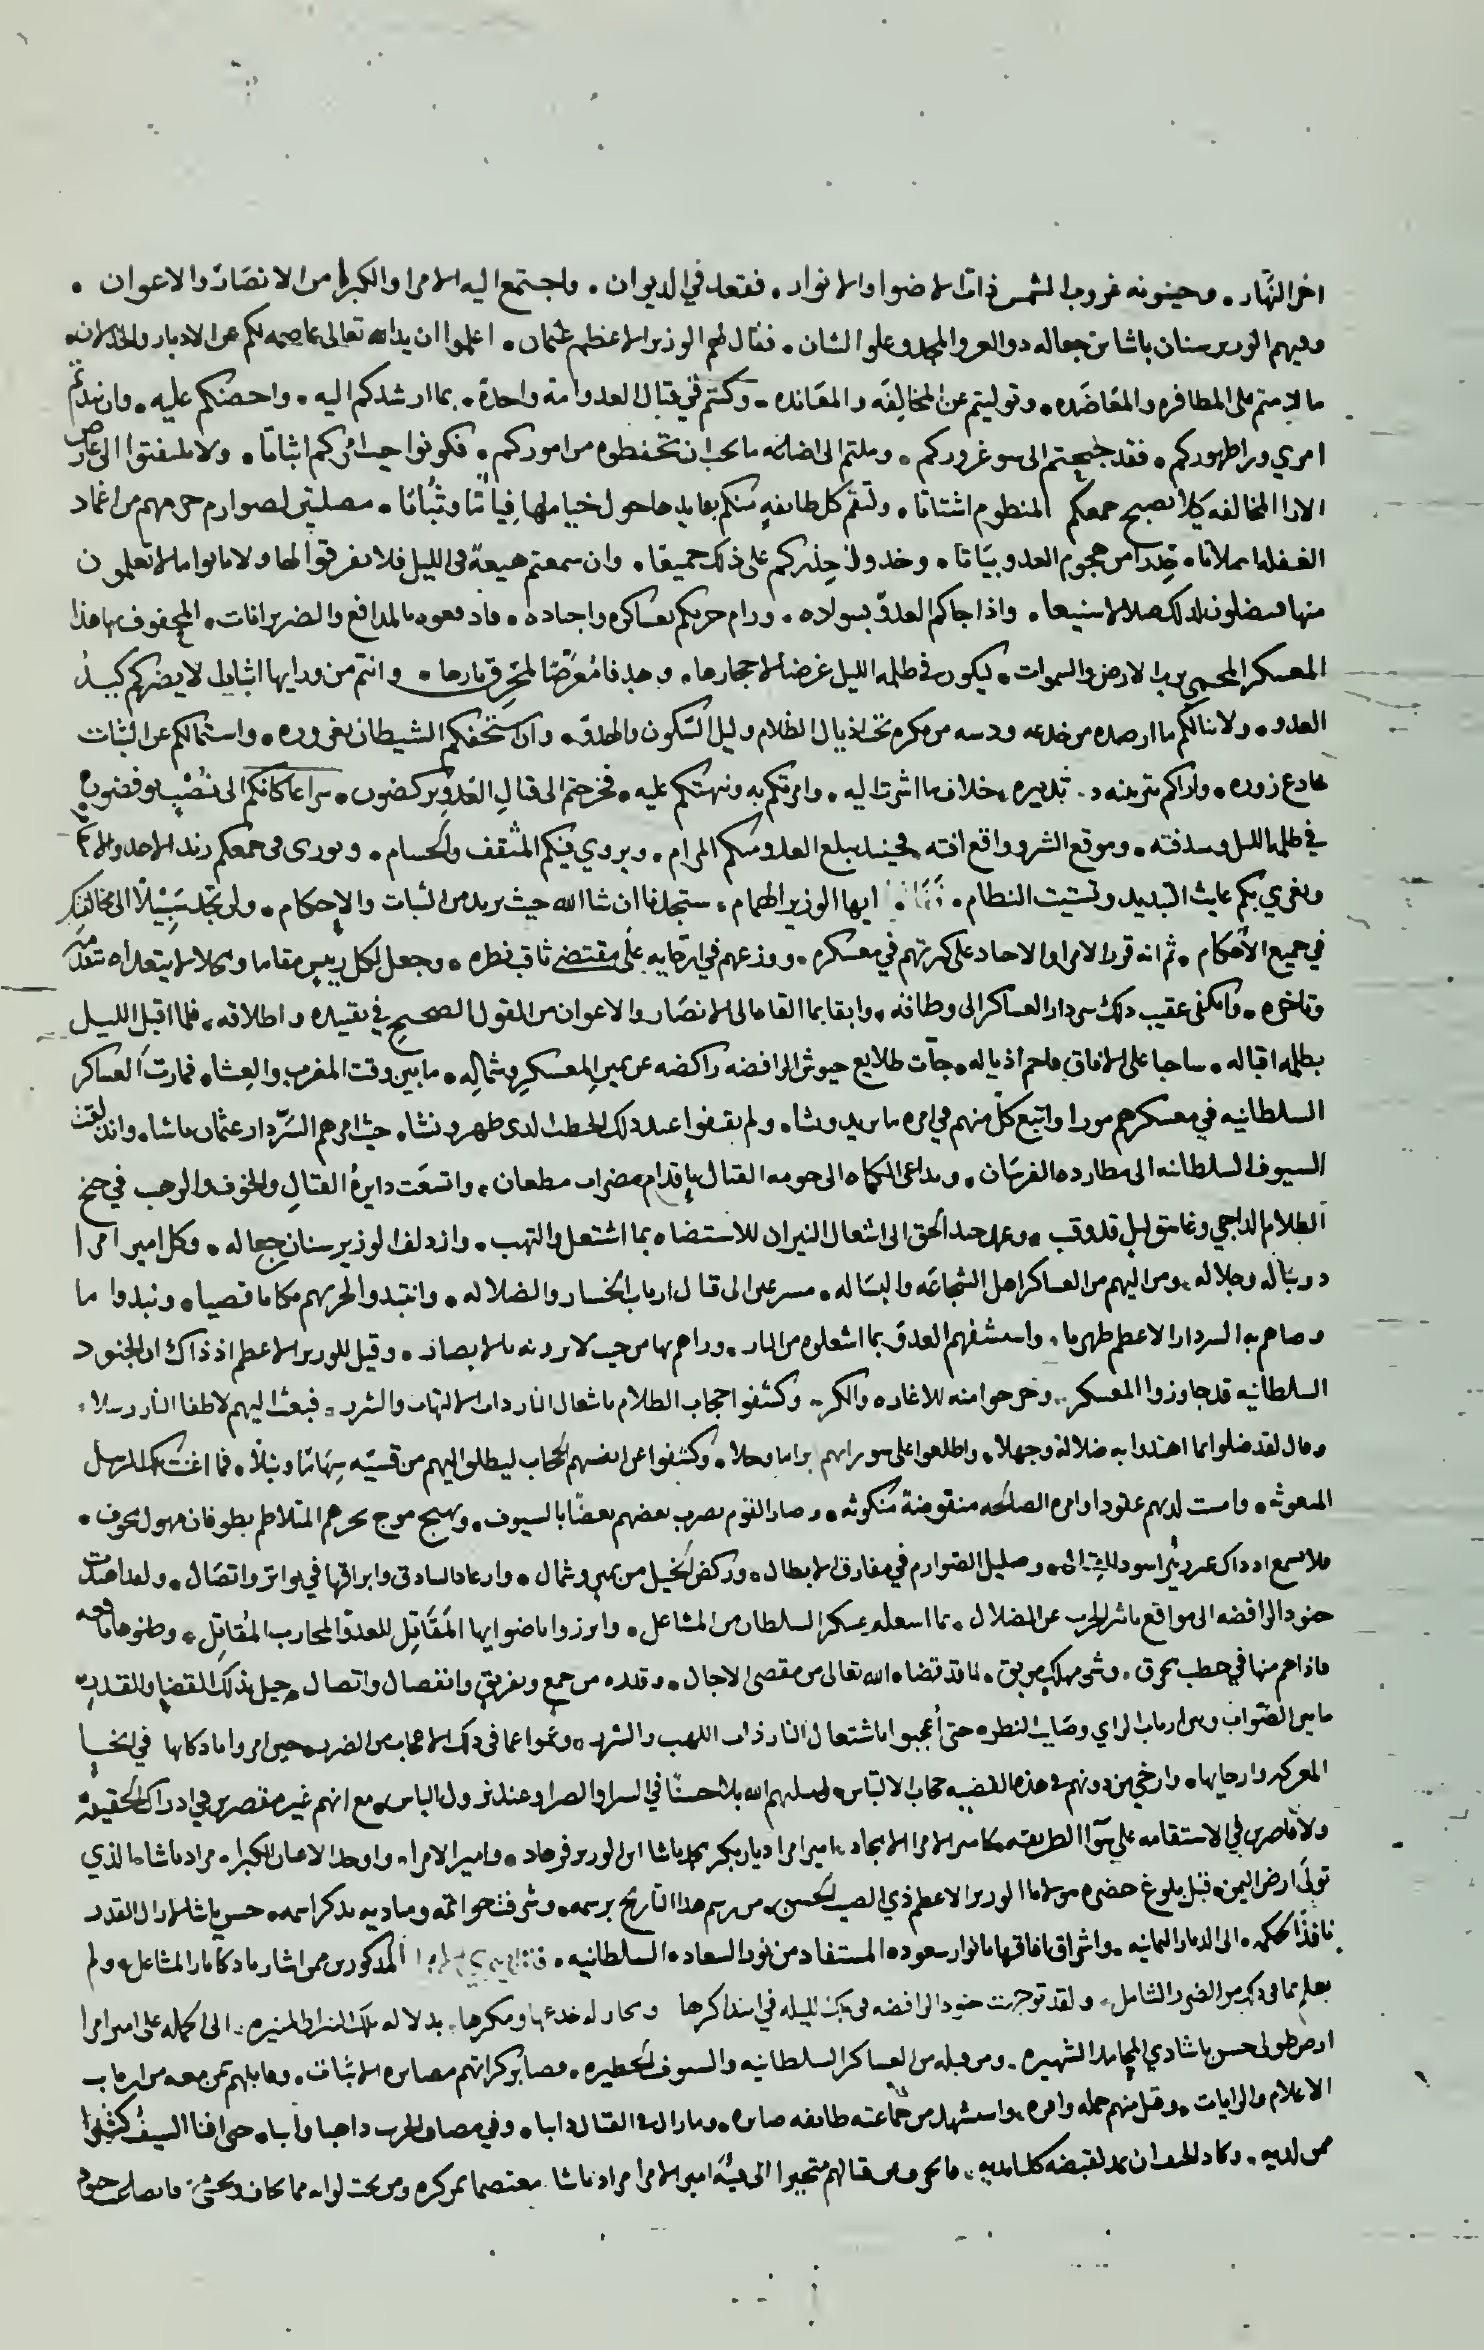 اخر النهار . وحينونه غروب الشمس ذات الاضوا والانوار . فقعد في الديوان . واجتمع اليه الامرا والكبرا من الانصار والاعوان .
وفيهم الوزير سنان باشا بن جغاله ذو العز والمجد وعلو الشان . فقال لهم الوزير الاعظم عثمان . اعلموا ان يد الله تعالى عاصمه لكم عن الادبار والخذلان .
ما لازمتم على المظافره والمعاضده . وتوليتم عن المخالفه والمعانده . وكنتم في قتال العدو امة واحدة . بما ارشدكم اليه . واحضكم عليه . وان نبذتم
امري ورا ظهوركم . فقد جنحتم الى سو غروركم . وملتم الى اضاعه ما يجب ان تحفظوه من اموركم . فكونوا حيث امركم اثباتا . ولا تلتفتوا الى عارض
الارا المخالفه كيلا يصبح جمعكم المنظوم اشتاتا . ولتقم كل طايفه منكم بقايدها حول خيامها فيانا وثباتا . مصلتين لصوارم حزمهم من اغماد
الغفله اصلاتا . حذرا من هجوم العدو بياتا . وخذوا حذركم على ذلك جميعا . وان سمعتم هيعة في الليل فلا تفرقوا لها ولا تاتوا ما لا تعلمون
منها فتضلون بذلك ضلالا شنيعا . واذا جاكم العدو بسواده . ورام حربكم بعساكره واجناده . فادفعوه بالمدافع والضربزانات . المحفوف بها هذا
المعسكر المحمي برب الارض والسموات . ليكون في ظلمه الليل غرضا لاحجارها . وهدفا معرضا لمحرق نارها . وانتم من ورايها اثباتا لا يضركم كيد
العدو . ولا ينالكم ما ارصده من خدعه ودسه من مكره تحت اذيال الظلام وليل السكون والهدو . وان استخفكم الشيطان بغروره . واستمالكم عن الثبات
بخادع زوره . واراكم بتزيينه . تدبيره . خلاف ما اشرت اليه . وامرتكم به ونبهتكم عليه . فخرجتم الى قتال العدو تركضون . سراعا كانكم الى نصب يوفضون
في ظلمه الليل وسدفته . وموقع الشر وواقع افته . فحينئذ يبلغ العدو منكم المرام . ويروي فيكم المثقف والحسام . ويورى في جمعكم زند الاحد والا
ويغري بكم عابث التبديد وتشتيت النظام . ايها الوزير الهمام . ستجدنا ان شا الله حيث تريد من الثبات والاحكام . ولن تجد سبيلا الى مخالفتك
في جميع الاحكام . ثم انه قرر الامرا والاحاد على كثرتهم في معسكره . ووزعهم في ارجايه على مقتضى ثاقب نظره . وجعل لكل رييس مقاما ومكانا لا يتعداه متقدمه
وتاخره . وانكفى عقيب ذلك سردار العساكر الى وطاقه . واثقا بما القاه الى الانصار والاعوان من القول الصحيح في تقييده واطلاقه . فلما اقبل الليل
بظلمه اقباله . ساحبا على الافاق فاحم اذياله . جآت طلايع جيوش الرافضه راكضه عن يمين المعسكر وشماله . ما بين وقت المغرب والعشا . فمارت العساكر
السلطانيه في معسكرهم مورا واتبع كل منهم في امره ما يريد ويشا . ولم يقفوا عند ذلك الخطب الذي ظهر ونشا . حيث امرهم السردار عثمان باشا . واندلقت
السيوف السلطانيه الى مطارده الفرسان . وتداعى الكماه الى حومه القتال باقدام مضراب مطعان . واتسعت دايرة القتال والخوف والرجب في جنح
الظلام الداجي وغاسق ليل قد وقب . وعمد جند الحق الى اشعال النيران للاستضاه بما اشتعل والتهب . وازدلف الوزير سنان بن جغاله . وكل امير امرا
ذو نباله وجلاله . ومن اليهم من العساكر اهل الشجاعه والبساله . مسرعين الى قتال ارباب الخسار والضلاله . وانتبذوا لحربهم مكانا قصيا . ونبذوا ما
وصاهم به السردار الاعظم ظهريا . واستشفهم العدو بما اشعلوه من النار . وراهم بها من حيث لا يرونه بالابصار . وقيل للوزير الاعظم اذ ذاك ان الجنود
السلطانيه قد جاوزوا المعسكر . وخرجوا منه للاغاره والكر . وكشفوا حجاب الظلام باشعال النار ذات الالتهاب والشرر . فبعث اليهم لاطفا النار رسلا .
وقال لقد ضلوا بما اهتدوا به ضلالة وجهلا . واطلعوا على سو رايهم . وكشفوا عن انفسهم الحجاب ليطلق اليهم من قسيه سهاما ونبلا . فما اغنت تلك الرسل
المبعوثه . وامست لديهم عقود اوامره الصالحه منقوضة منكوثه . وصار القوم يضرب بعضهم بعضا بالسيوف . ويهيج موج بحرهم المتلاطم بطوفان مهول مخوف .
فلا تسمع اذ ذاك غير زئير اسود القتال . وصليل الصوارم في مفارق الابطال . وركض الخيل من يمين وشمال . وارعاد البنادق وابراقها في تواتر واتصال . ولقد اهتدت
جنود الرافضه الى مواقع ماثر الحرب عن الضلال . بما اشعله عسكر السلطان من المشاعل . وابرزوا باضوايها المقاتل للعدو المحارب المقاتل . وظنوها نافعه
فاذا هم منها في حطب محرق . وشي مهلك موبق . لما قد قضاه الله تعالى من مقضى الاجال . وقدره من جمع وتفريق وانفصال واتصال . حيل بذلك القضا والقدر
ما بين الصواب وبين ارباب الراي وصايب النظر . حتى أعجبوا باشتعال النار ذات اللهب والشرر . وعموا عما في ذلك الاعجاب من الضرر . حين امروا باذكايها في انحا
المعركه وارجايها . وارخى من دونهم في هذه القضيه حجاب الالتباس . ليبليهم الله بلا حسنا في السرا والضرا وعند نزول الباس . مع انهم غير مقصرين في ادراك الحقيقه
ولا قاصرين في الاستقامه على سوآ الطريقه . كامير الامرا الامجاد . امير امرا ديار بكر محمد باشا ابن الوزير فرهاد . وامير الامرا . واوحد الاعيان الكبرا . مراد باشا الذي
تولى ارض اليمن . قبل بلوغ حضره مولانا الوزير الاعظم ذي الصيت الحسن . من رسم هذا التاريخ برسمه . وشرفت خواتمه ومباديه بذكر اسمه . حسن باشا لا زال القدر
نافذا بحكمه . الى الديار اليمانيه . واشراق افاقها بانوار سعوده المستفاد من نور السعاده السلطانيه . المذكورين ممن اشار باذكا نار المشاعل . ولم
يعلم بما في ذلك من الضرر الشامل . ولقد توجهت جنود الرافضه في تلك الليله في اشتداد كرها ومحاوله خدعها ومكرها . بدلاله تلك النيران المنيره . الى الحمله على امير امرا
ارض طولى حسن باشا ذي المحامد الشهيره . ومن قبله من العساكر السلطانيه والسيوف الخطيره . فصابر كراتهم مصابره الاثبات . وقابلهم بمن معه من ارباب
الاعلام والرايات . وقتل منهم جمله وافره . واستشهد من جماعته طايفه صابره . وما زال في القتال دايبا . وفي مصاف الحرب ذاهبا وآيبا . حتى افنا السيف كثيرا
ممن لديه . وكاد الحتف ان يمد لقبضه كلتا يديه . فانحرف عن قتالهم متحيزا الى فيئة امير الامرا مراد باشا . معتصما بمركزه ومن تحت لوايه مما يخاف ويخشى . فانصلت جنود